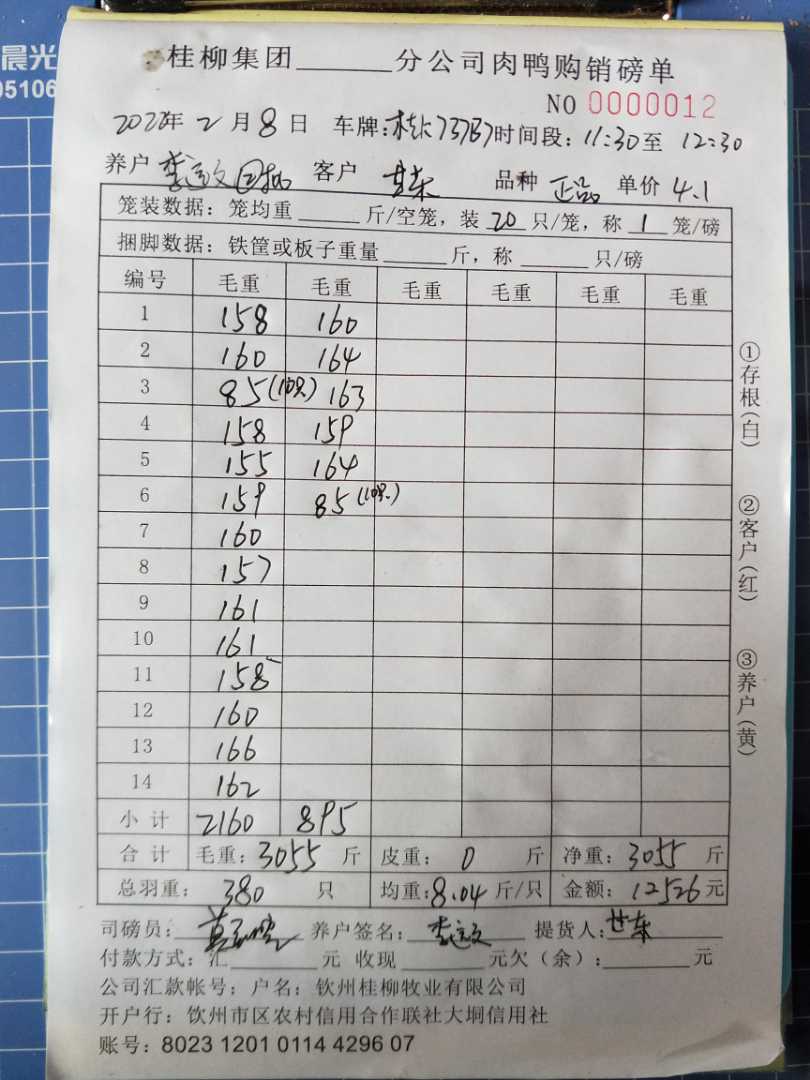 晨光
05106
桂柳集团______分公司肉鸭购销磅单
NO 0000012
2022年2月8日 车牌: 时间段:11:30至 12:30
养户 李 客户 品种 正品 单价 4.1
笼装数据: 笼均重 ______ 斤/空笼, 装 20 只/笼, 称 1 笼/磅
捆脚数据: 铁筐或板子重量______斤, 称 ______ 只/磅
编号 毛重 毛重 毛重 毛重 毛重 毛重
1 158 160
2 160 164
3 85(10只) 163
4 158 159
5 155 164
6 159 85(10只)
7 160
8 157
9 161
10 161
11 158
12 160
13 166
14 162
小计 2160 895
合计 毛重: 3055 斤 皮重: 0 斤 净重: 3055 斤
总羽重: 380 只 均重:8.04 斤/只 金额: 12526元
司磅员: 养户签名: 李 提货人:
付款方式:汇______元 收现______元欠(余):______元
公司汇款帐号: 户名: 钦州桂柳牧业有限公司
开户行: 钦州市区农村信用合作联社大垌信用社
账号: 8023 1201 0114 4296 07
①存根(白)
②客户(红)
③养户(黄)